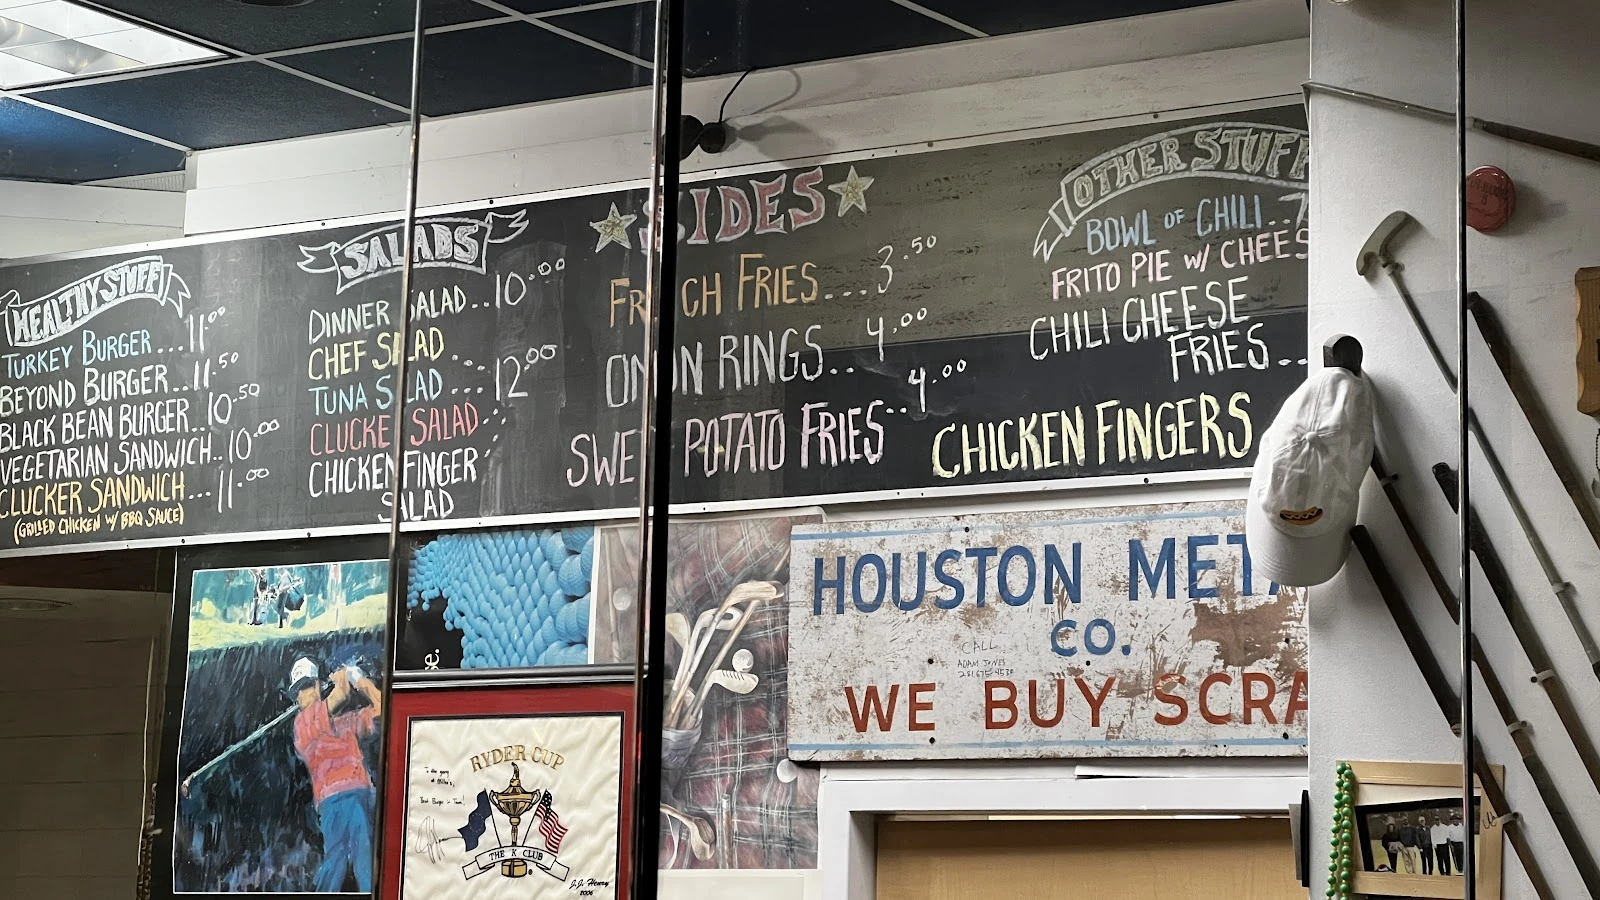 HEALTHY STUFF
TURKEY BURGER...11.00
BEYOND BURGER..11.50
BLACK BEAN BURGER..10.50
VEGETARIAN SANDWICH..10.00
CLUCKER SANDWICH...11.00
(GRILLED CHICKEN W/ BBQ SAUCE)
SALADS
DINNER SALAD..10.00
CHEF SALAD
TUNA SALAD...12.00
CLUCKE SALAD
CHICKEN FINGER
SALAD
SIDES
FR CH FRIES...3.50
ON ON RINGS..4.00
SWE POTATO FRIES..4.00
OTHER STUFF
BOWL OF CHILI..7
FRITO PIE W/ CHEES
CHILI CHEESE
FRIES..
CHICKEN FINGERS
HOUSTON META
CO.
CALL
ADAM JONES
WE BUY SCRA
e.
RYDER CUP
To the gang
at Millers,
Best Burger in Town!
THE K CLUB
J.J. Henry
2006